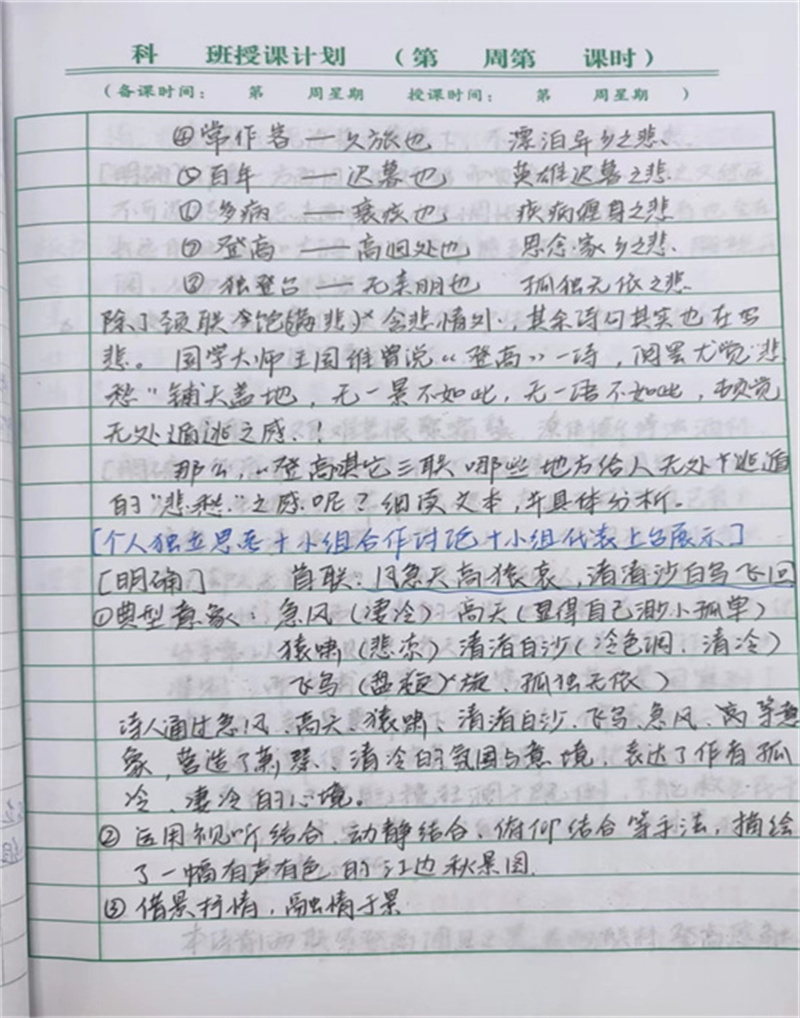 科 班授课计划 （第 周第 课时）
（备课时间： 第 周星期 授课时间： 第 周星期 ）
④常作客——久旅也 漂泊异乡之悲
⑤百年——迟暮也 英雄迟暮之悲
多病——衰疾也 疾病缠身之悲
⑦登高——高迥处也 思念家乡之悲
⑧独登台——无亲朋也 孤独无依之悲
除了颈联饱(满悲)含悲情外，其余诗句其实也在写
悲。国学大师王国维曾说《登高》一诗，阅罢尤觉"悲
愁"铺天盖地，无一景不如此，无一语不如此，顿觉
无处遁逃之感！
那么，《登高其它三联哪些地方给人无处逃遁
的"悲愁"之感呢？细读文本，并具体分析。
[个人独立思考+小组合作讨论+小组代表上台展示]
[明确] 首联：风急天高猿哀，渚清沙白鸟飞回
①典型意象：急风（凄冷）高天（显得自己渺小孤单）
猿啸（悲凉）清渚白沙（冷色调、清冷）
飞鸟（盘旋、孤独无依）
诗人通过急风、高天、猿啸、清渚白沙、飞鸟、急风、高等意
象，营造了萧瑟、清冷的氛围与意境，表达了作者孤
冷、凄冷的心境。
②运用视听结合、动静结合、俯仰结合等手法，描绘
了一幅有声有色的江边秋景图.
③借景抒情，融情于景